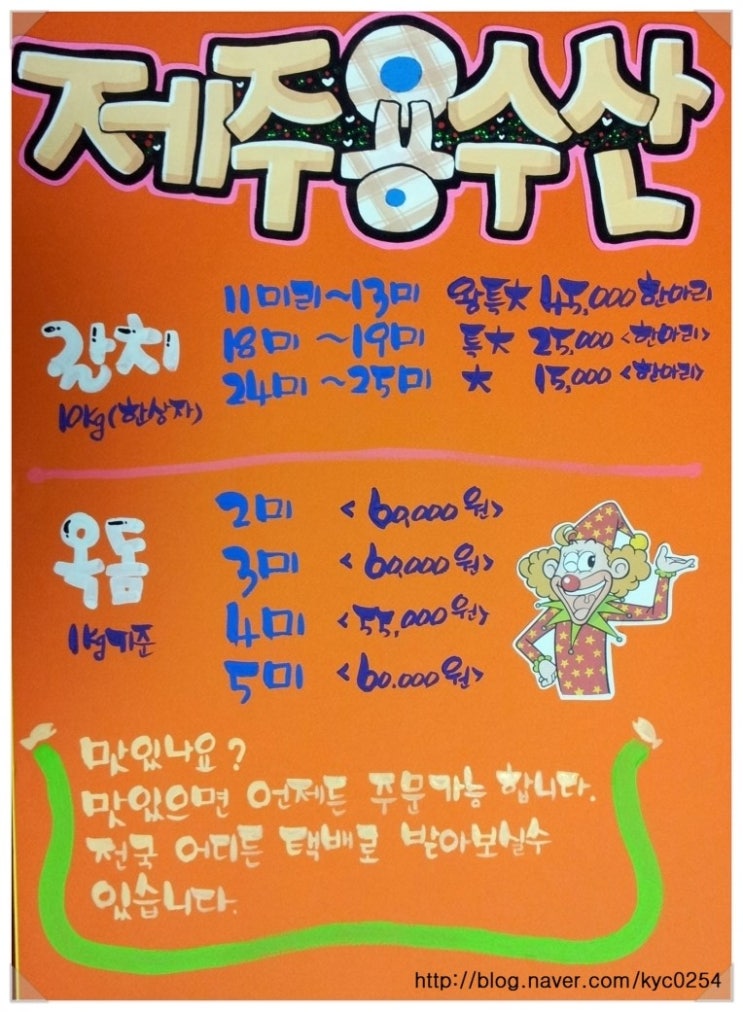 제주용수산
갈치
10kg (한상자)
11미리~13미 왕특大 45,000 한마리
18미 ~19미 특大 25,000 <한마리>
24미 ~25미 大 15,000 <한마리>
옥돔
1kg기준
2미 <60,000원>
3미 <60,000원>
4미 <55,000원>
5미 <60.000원>
맛있나요?
맛있으면 언제든 주문가능 합니다.
전국 어디든 택배로 받아보실수
있습니다.
http://blog.naver.com/kyc0254